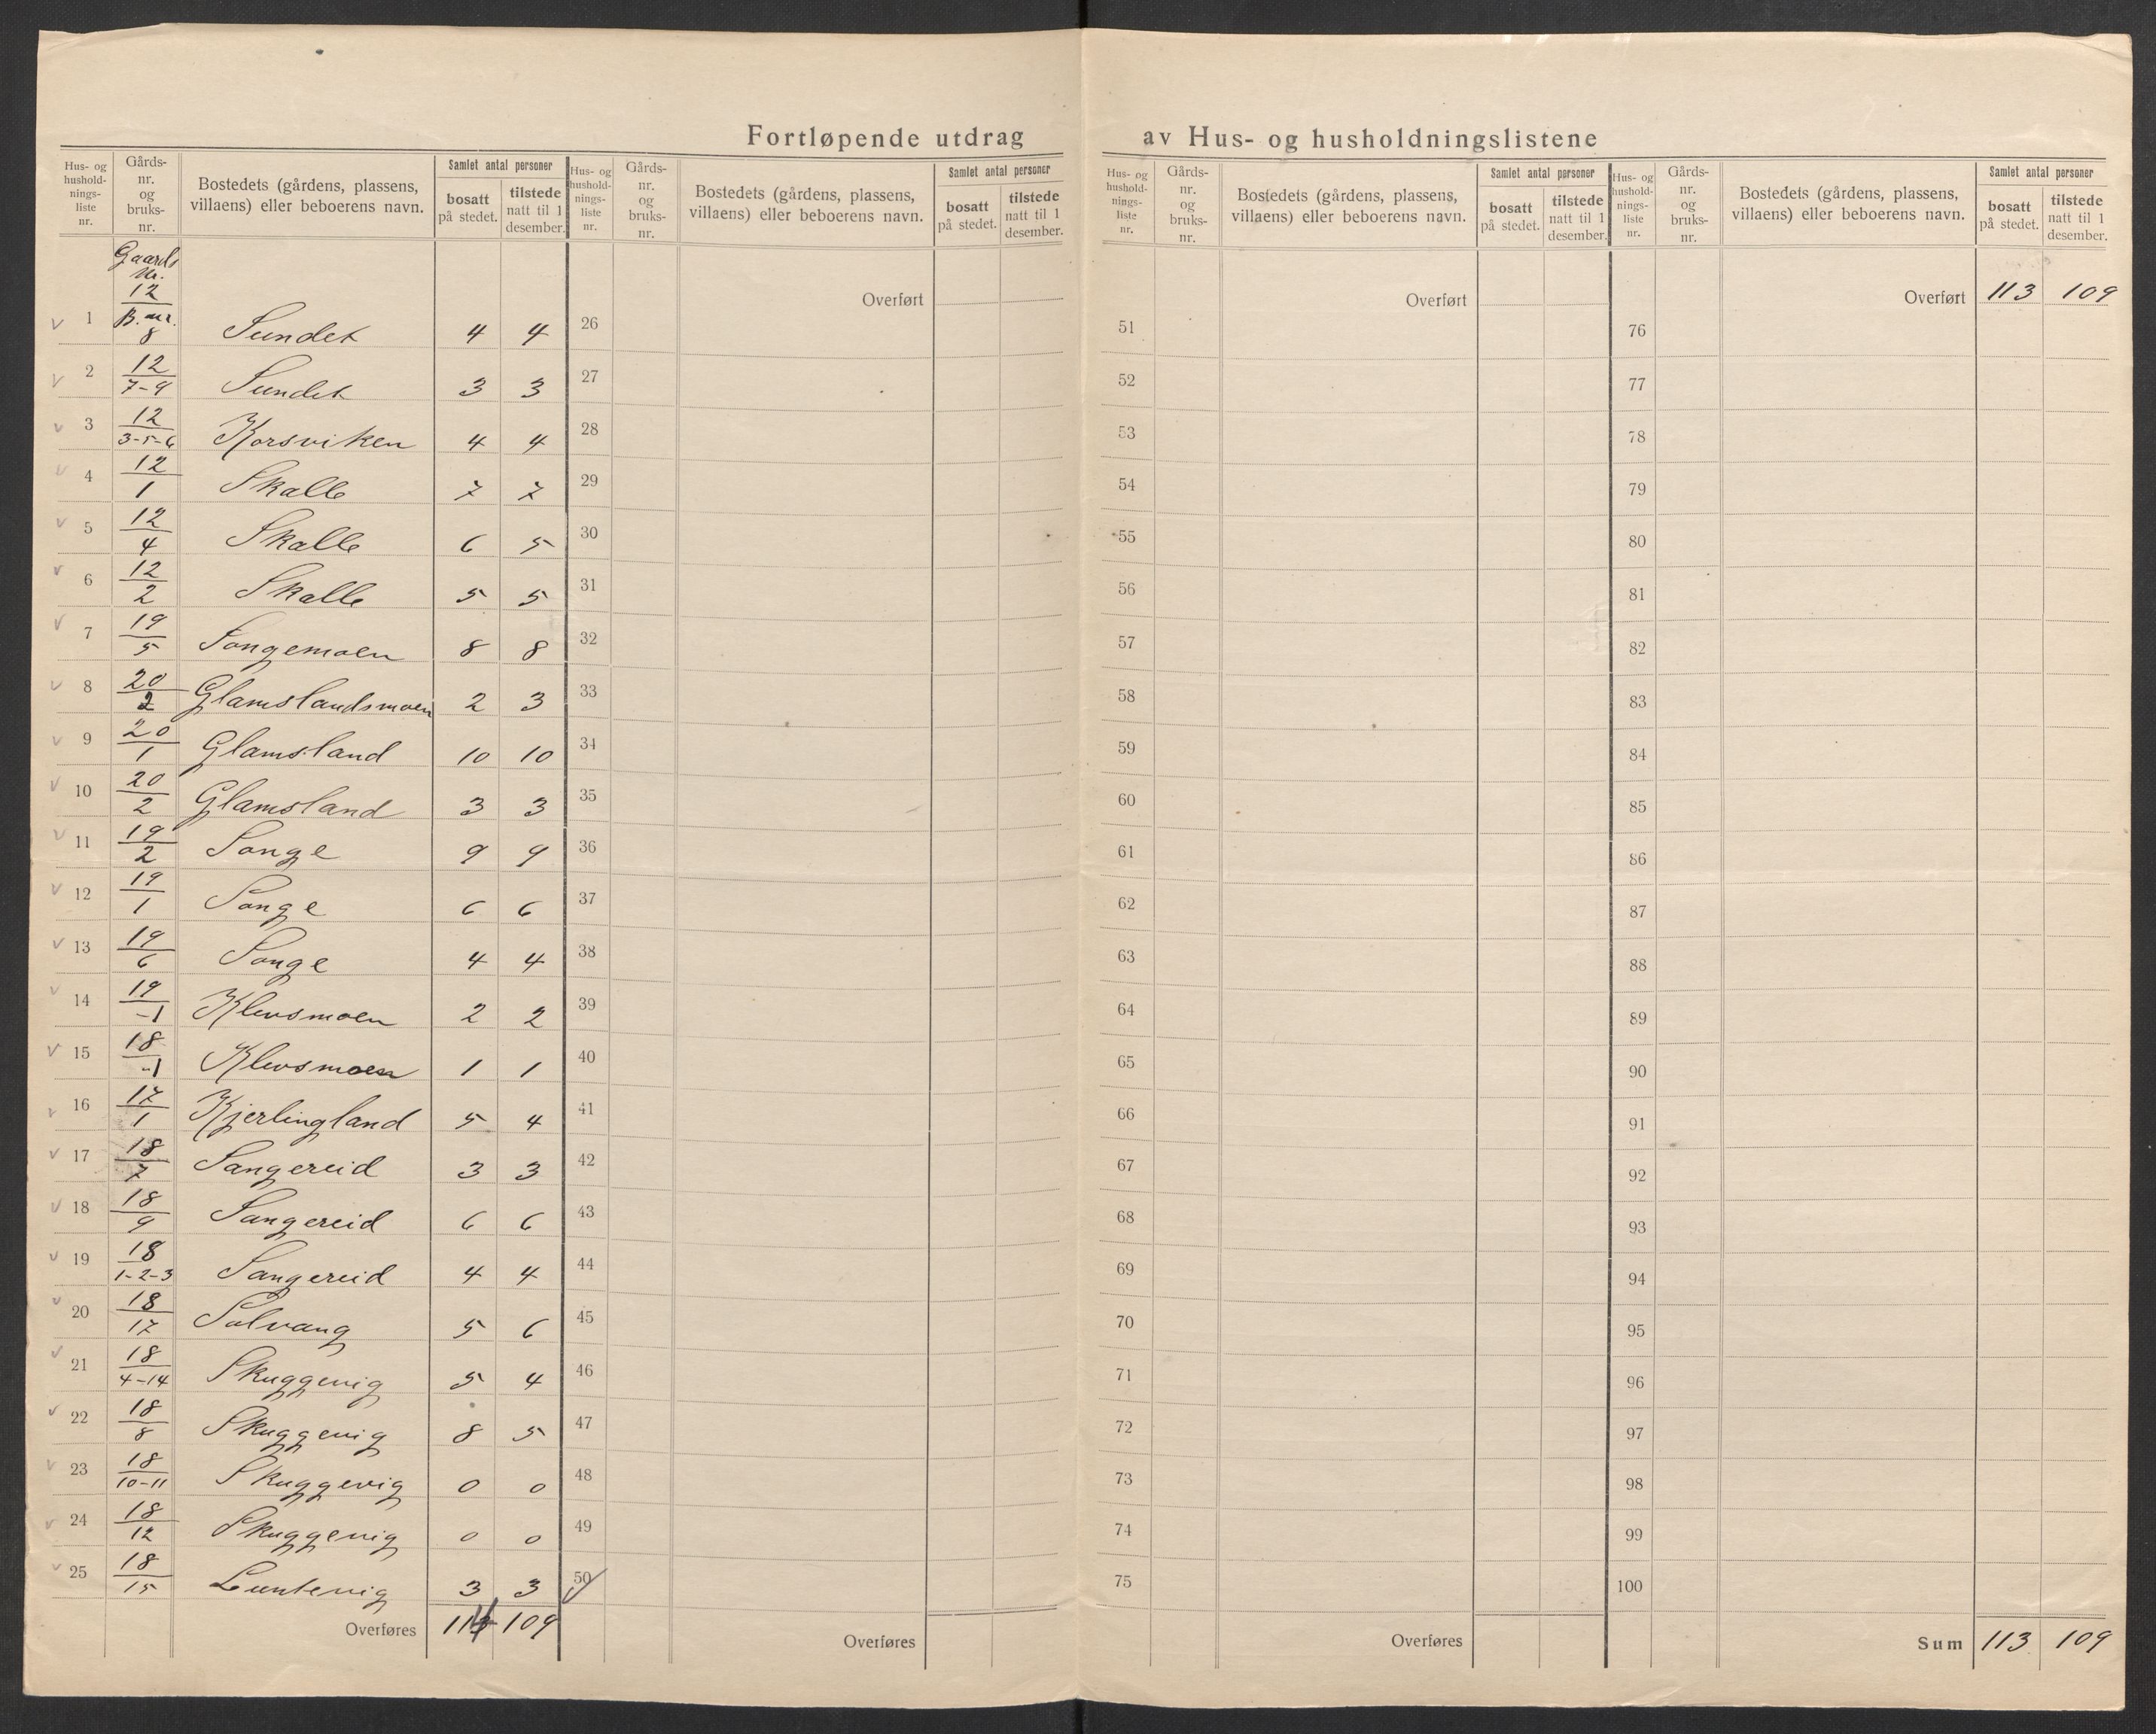 Fortløpende utdrag av Hus- og husholdningslistene
Hus- og hushold- nings- liste nr. | Gårds- nr. og bruks- nr. | Bostedets (gårdens, plassens, villaens) eller beboerens navn. | Samlet antal personer | bosatt på stedet. | tilstede natt til 1 desember.
Hus- og hushold- nings- liste nr. | Gårds- nr. og bruks- nr. | Bostedets (gårdens, plassens, villaens) eller beboerens navn. | Samlet antal personer | bosatt på stedet. | tilstede natt til 1 desember.
Hus- og hushold- nings- liste nr. | Gårds- nr. og bruks- nr. | Bostedets (gårdens, plassens, villaens) eller beboerens navn. | Samlet antal personer | bosatt på stedet. | tilstede natt til 1 desember.
Hus- og hushold- nings- liste nr. | Gårds- nr. og bruks- nr. | Bostedets (gårdens, plassens, villaens) eller beboerens navn. | Samlet antal personer | bosatt på stedet. | tilstede natt til 1 desember.
Gaards Nr.
1 12 / B.nr. 8 Sundet 4 4
2 12/7-9 Sundet 3 3
3 12/3-5-6 Korsviken 4 4
4 12/1 Skalle 7 7
5 12/4 Skalle 6 5
6 12/2 Skalle 5 5
7 19/5 Songemoen 8 8
8 20/2 Glamslandsmoen 2 3
9 20/1 Glamsland 10 10
10 20/2 Glamsland 3 3
11 19/2 Songe 9 9
12 19/1 Songe 6 6
13 19/6 Songe 4 4
14 19/-1 Klevsmoen 2 2
15 18/-1 Klevsmoen 1 1
16 17/1 Kjerlingland 5 4
17 18/7 Sangereid 3 3
18 18/9 Sangereid 6 6
19 18/1-2-3 Sangereid 4 4
20 18/17 Solvang 5 6
21 18/4-14 Skuggevig 5 4
22 18/8 Skuggevig 8 5
23 18/10-11 Skuggevig 0 0
24 18/12 Skuggevig 0 0
25 18/15 Luntevig 3 3
Overføres 109
Overført
26
27
28
29
30
31
32
33
34
35
36
37
38
39
40
41
42
43
44
45
46
47
48
49
50
Overføres
Overført
51
52
53
54
55
56
57
58
59
60
61
62
63
64
65
66
67
68
69
70
71
72
73
74
75
Overføres
Overført 113 109
76
77
78
79
80
81
82
83
84
85
86
87
88
89
90
91
92
93
94
95
96
97
98
99
100
Sum 113 109